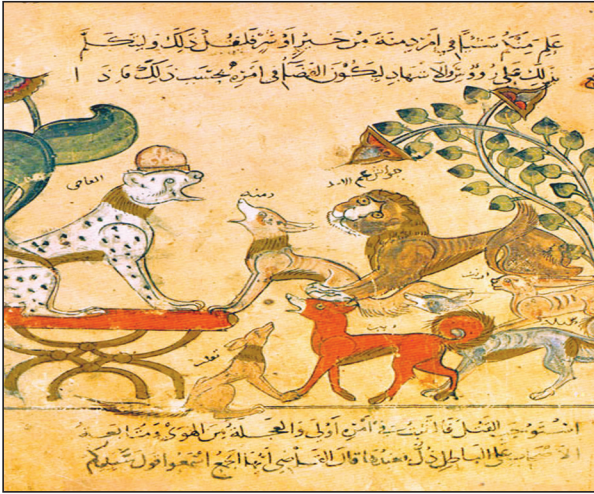 علم منكم شيئا في امر دمنة من خير او شر فليقل ذلك وليتكلم
بذلك على رووس الاشهاد ليكون القضا في امره بحسب ذلك فاذا
القاضي
دمنة
عم الاسد
ارنب
ثعلب
استوجب القتل فالتثبت في امره اولى والعجلة من الهوى ومتابعة
الاصحاب على الباطل ذل قال القاضي ايها الجمع اسمعوا قول سيدكم